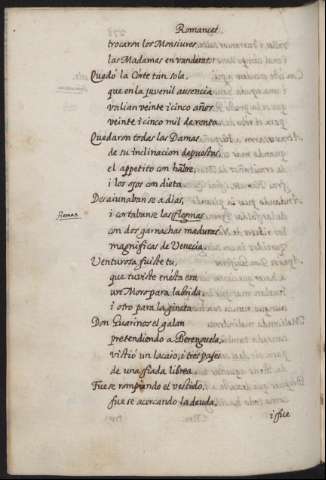 Romances
trocarm los Monsiures,
las Madamas en vandanas.
Quedó la Corte tan sola,
que en la juvenil ausencia
valian veinte i cinco años
veinte i cinco mil de renta.
Quedaron todas las Damas
de su inclinacion depuestas,
el appetito con hābre,
i los ojos con dieta.
Desaiunaban se a dias,
i cortabanse las flemas
con dos garnachas maduras
magnificas de Venecia.
Venturosa fuiste tu,
que tuviste en esta era
un Moro para la brida,
i otro para la gineta.
Don Guarinos el galan
pretendiendo a Berenguela,
vistió un lacaio, i tres pajes
de una fiada librea.
Fuese rompiendo el vestido,
fuese acercando la deuda,
i fuese